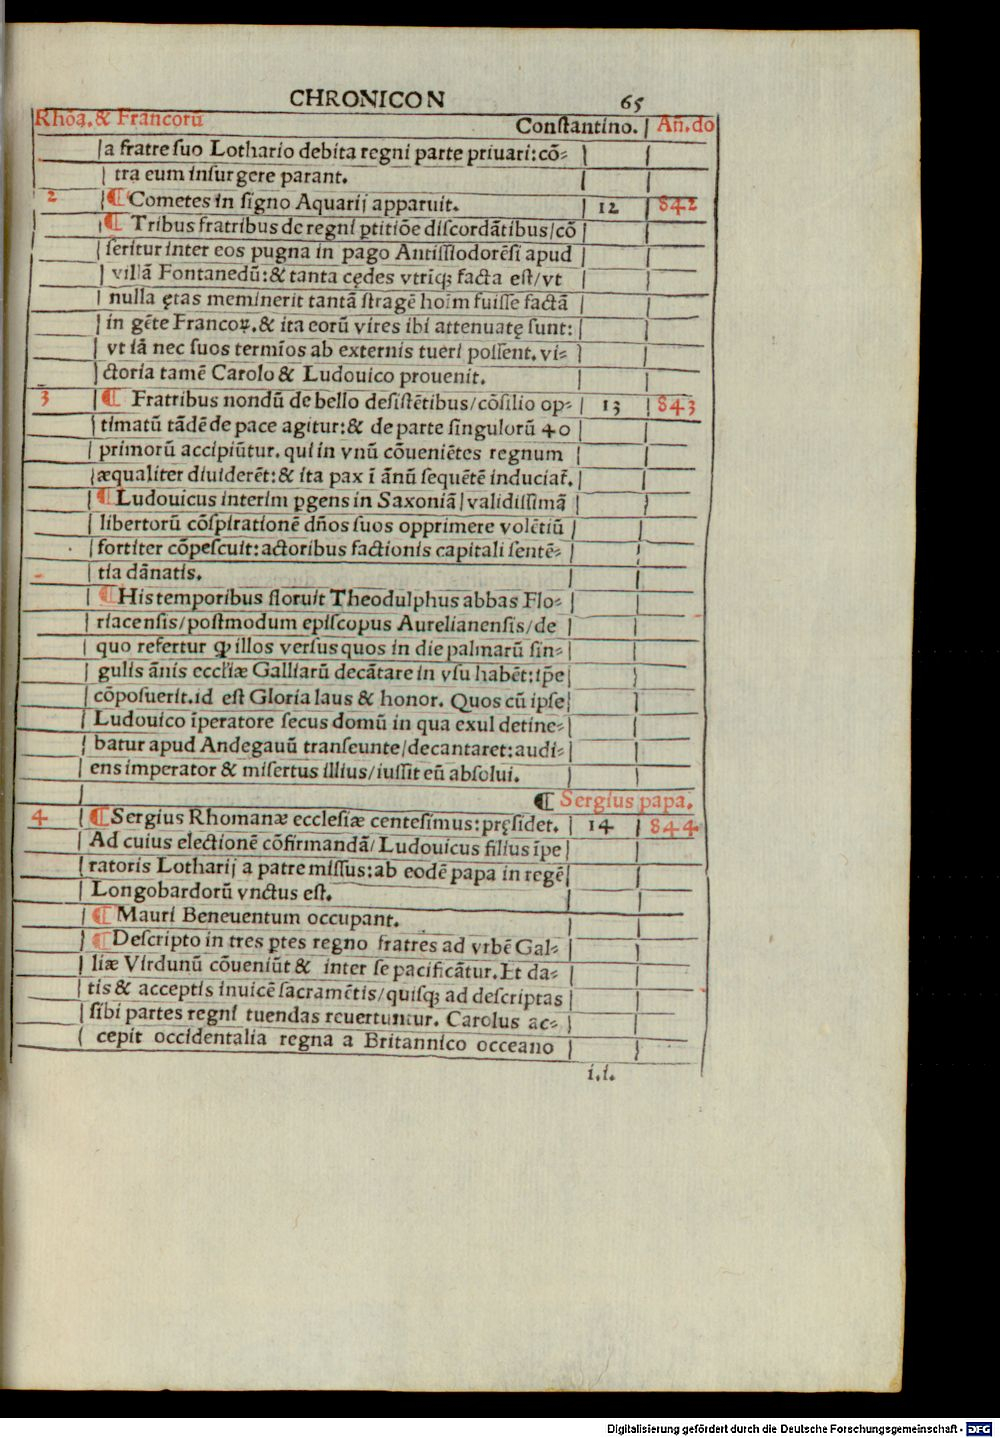 CHRONICON 65
Rhōa₄.& Francorū Constantino. An̄.do
a fratre ſuo Lothario debita regni parte priuari:cō⸗
tra eum inſurgere parant.
2 ¶ Cometes in ſigno Aquarij apparuit. 12 842
¶ Tribus fratribus de regni ꝑtitiōe diſcordātibus/cō
ſeritur inter eos pugna in pago Antiſſiodorēſi apud
villā Fontanedū:& tanta cędes vtriq; facta eſt/vt
nulla ętas meminerit tantā ſtragē hoīm fuiſſe factā
in gēte Francoꝝ.& ita eorū vires ibi attenuatę ſunt:
vt iā nec ſuos termīos ab externis tueri poſſent.vi⸗
ctoria tamē Carolo & Ludouico prouenit.
3 ¶ Fratribus nondū de bello deſiſtētibus/cōſilio op⸗ 13 843
timatū tādē de pace agitur:& de parte ſingulorū 40
primorū accipiūtur.qui in vnū cōueniētes regnum
æqualiter diuiderēt:& ita pax ī ānū ſequētē induciat̄.
¶ Ludouicus interim ꝑgens in Saxoniā/validiſſimā
libertorū cōſpirationē dn̄os ſuos opprimere volētiū
fortiter cōpeſcuit:actoribus factionis capitali ſentē⸗
tia dānatis.
¶ His temporibus floruit Theodulphus abbas Flo⸗
riacenſis/poſtmodum epiſcopus Aurelianenſis/de
quo refertur ꝙ illos verſus quos in die palmarū ſin⸗
gulis ānis eccl̄iæ Galliarū decātare in vſu habēt:ip̄e
cōpoſuerit.id eſt Gloria laus & honor. Quos cū ipſe
Ludouico īperatore ſecus domū in qua exul detine⸗
batur apud Andegauū tranſeunte/decantaret:audi⸗
ens imperator & miſertus illius/iuſſit eū abſolui.
¶ Sergius papa.
4 ¶ Sergius Rhomanæ eccleſiæ centeſimus:pręſidet. 14 844
Ad cuius electionē cōfirmandā/Ludouicus filius īpe
ratoris Lotharij a patre miſſus:ab eodē papa in regē
Longobardorū vnctus eſt.
¶ Mauri Beneuentum occupant.
¶ Deſcripto in tres ꝑtes regno fratres ad vrbē Gal⸗
liæ Virdunū cōueniūt & inter ſe pacificātur.Et da⸗
tis & acceptis inuicē ſacramētis/quiſq; ad deſcriptas
ſibi partes regni tuendas reuertuntur. Carolus ac⸗
cepit occidentalia regna a Britannico occeano
i.i.
Digitalisierung gefördert durch die Deutsche Forschungsgemeinschaft - DFG